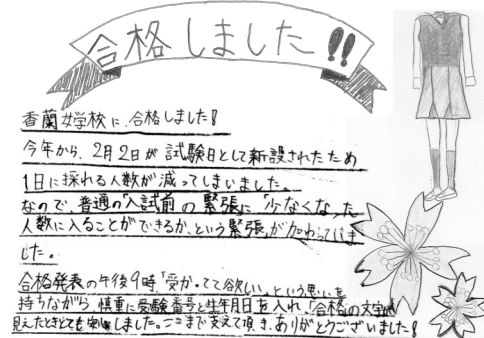 合格しました!!
香蘭女学校に、合格しました!
今年から、2月2日が試験日として新設されたため
1日に採れる人数が減ってしまいました。
なので、普通の「入試前の緊張」に「少なくなった
人数に入ることができるか、という緊張」が加わっていま
した。
合格発表の午後9時、「受かってて欲しい」という思いを
持ちながら、慎重に受験番号と生年月日を入れ、「合格」の文字が
見えたときとても安心しました。ここまで支えて頂き、ありがとうございました!